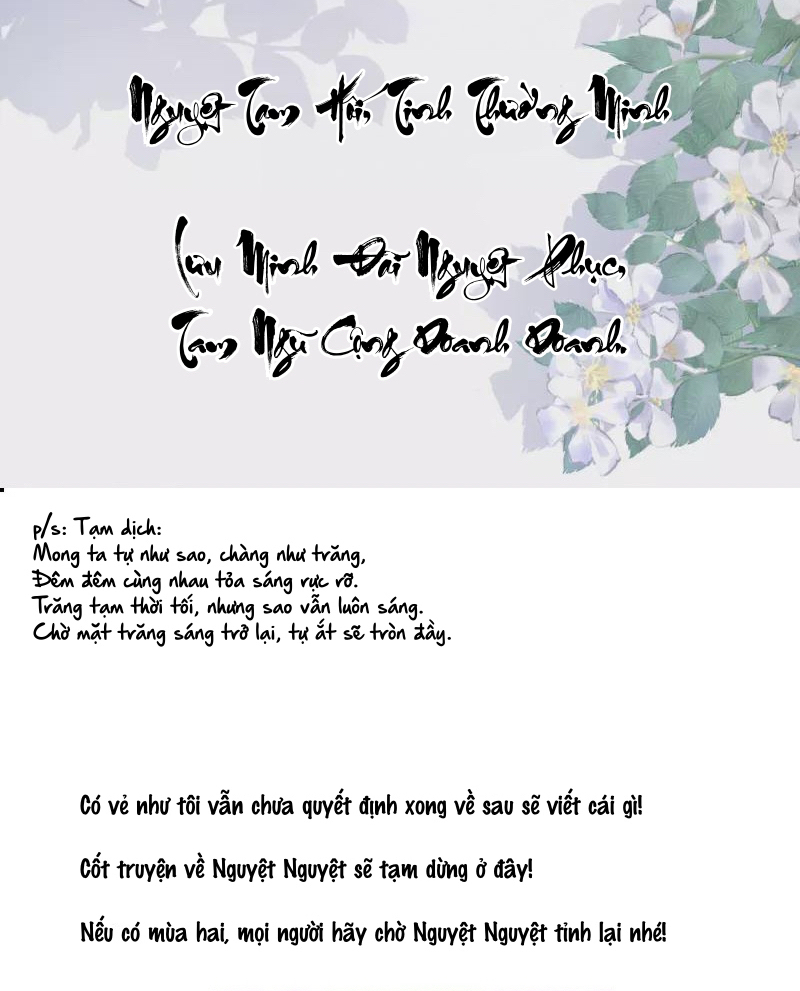 Nguyệt Tạm Hối, Tinh Thường Minh
Lưu Minh Đãi Nguyệt Phục,
Tam Ngũ Cộng Doanh Doanh.
p/s: Tạm dịch:
Mong ta tự như sao, chàng như trăng,
Đêm đêm cùng nhau tỏa sáng rực rỡ.
Trăng tạm thời tối, nhưng sao vẫn luôn sáng.
Chờ mặt trăng sáng trở lại, tự ắt sẽ tròn đầy.
Có vẻ như tôi vẫn chưa quyết định xong về sau sẽ viết cái gì!
Cốt truyện về Nguyệt Nguyệt sẽ tạm dừng ở đây!
Nếu có mùa hai, mọi người hãy chờ Nguyệt Nguyệt tỉnh lại nhé!